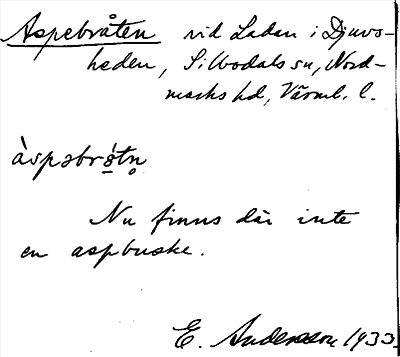 Aspebråten vid Ladan i Djuvs-
heden, Silbodals sn, Nord-
marks hd, Värml. l.
àspəbrɷ́tn̥
Nu finns där inte
en aspbuske.
E. Andersson 1933.